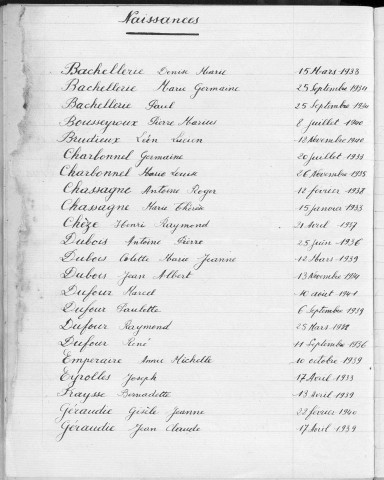 Naissances
Bachellerie Denise Marie 15 Mars 1933
Bachellerie Marie Germaine 25 Septembre 1934
Bachellerie Paul 25 Septembre 1934
Bousseyroux Pierre Marius 8 juillet 1940
Brudieux Léon Lucien 12 Novembre 1940
Charbonnel Germaine 20 juillet 1933
Charbonnel Marie Louise 26 Novembre 1935
Chassagne Antoine Roger 12 février 1938
Chassagne Marie Thérèse 15 janvier 1933
Chèze Henri Raymond 21 Avril 1937
Dubois Antoine Pierre 25 juin 1936
Dubois Colette Marie Jeanne 12 Mars 1939
Dubois Jean Albert 13 Novembre 1934
Dufour Marcel 10 août 1941
Dufour Paulette 6 Septembre 1939
Dufour Raymond 25 Mars
Dufour René 11 Septembre 1936
Emperaire Anne Michelle 10 octobre 1939
Eyrolles Joseph 17 Avril 1933
Fraysse Bernadette 13 Avril 1939
Géraudie Gisèle Jeanne 22 février 1940
Géraudie Jean Claude 17 Avril 1939